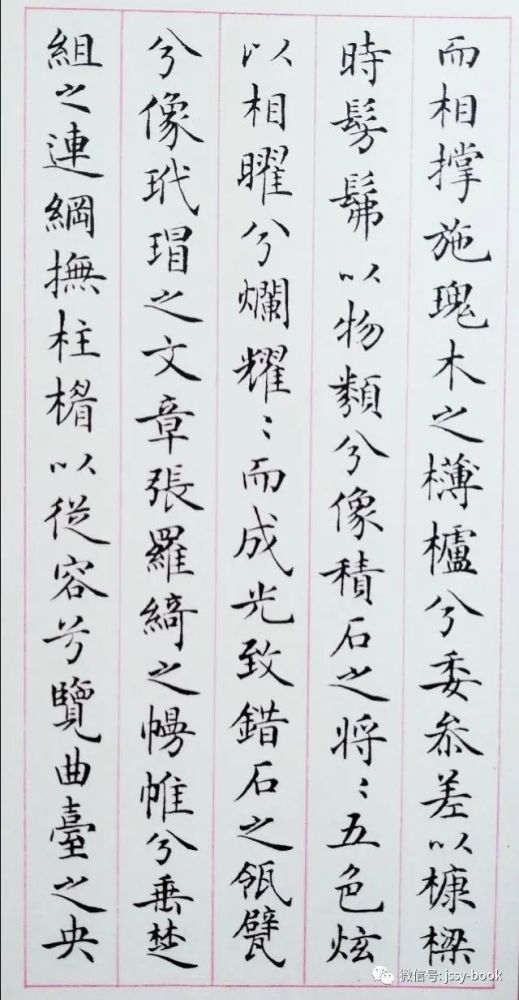 而相撑施瑰木之欂櫨兮委叅差以槺樑
時髣髴以物類兮像積石之将〻五色炫
以相曜兮爛耀〻而成光致錯石之瓴甓
兮像玳瑁之文章張羅綺之幔帷兮垂楚
組之連綱撫柱楣以從容兮覽曲臺之央
微信号: jssy-book